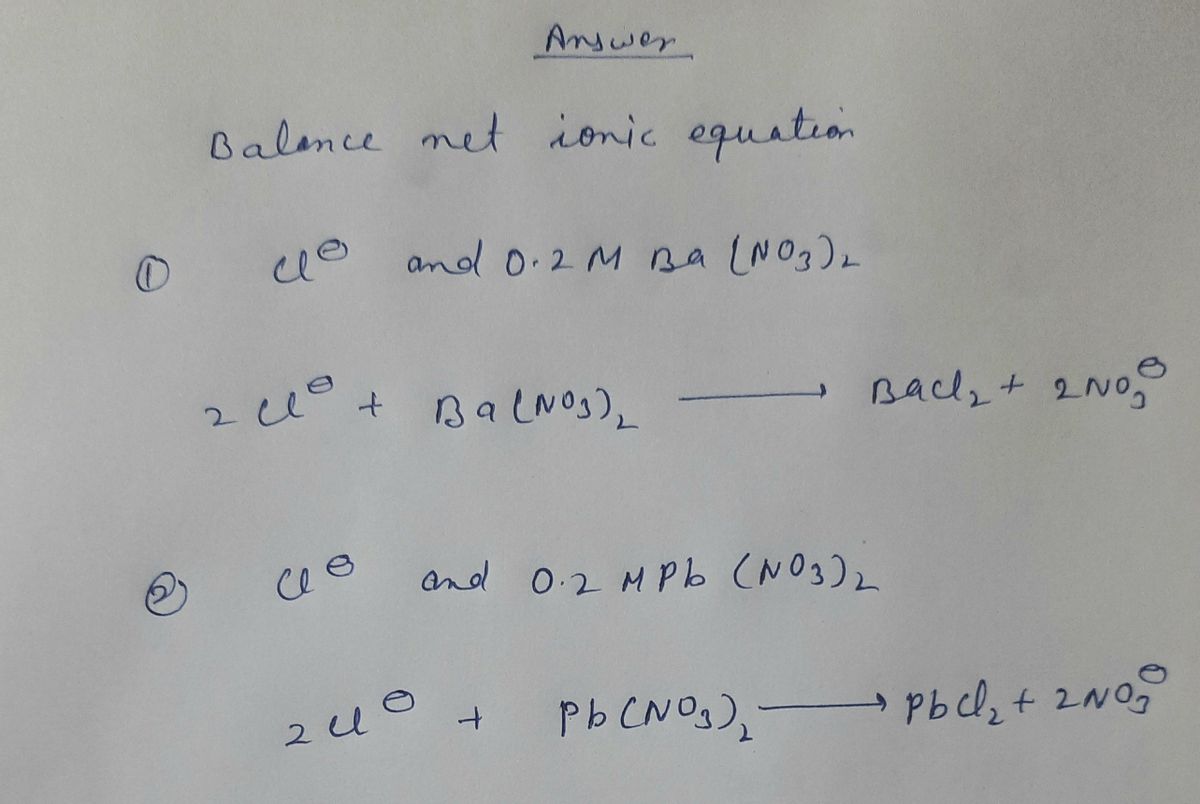 Answer
Balance net ionic equation
① Cl⊖ and 0.2 M Ba (NO₃)₂
2 Cl⊖ + Ba(NO₃)₂ ⟶ BaCl₂ + 2NO₃⊖
② Cl⊖ and 0.2 M Pb (NO₃)₂
2 Cl⊖ + Pb(NO₃)₂ ⟶ PbCl₂ + 2NO₃⊖